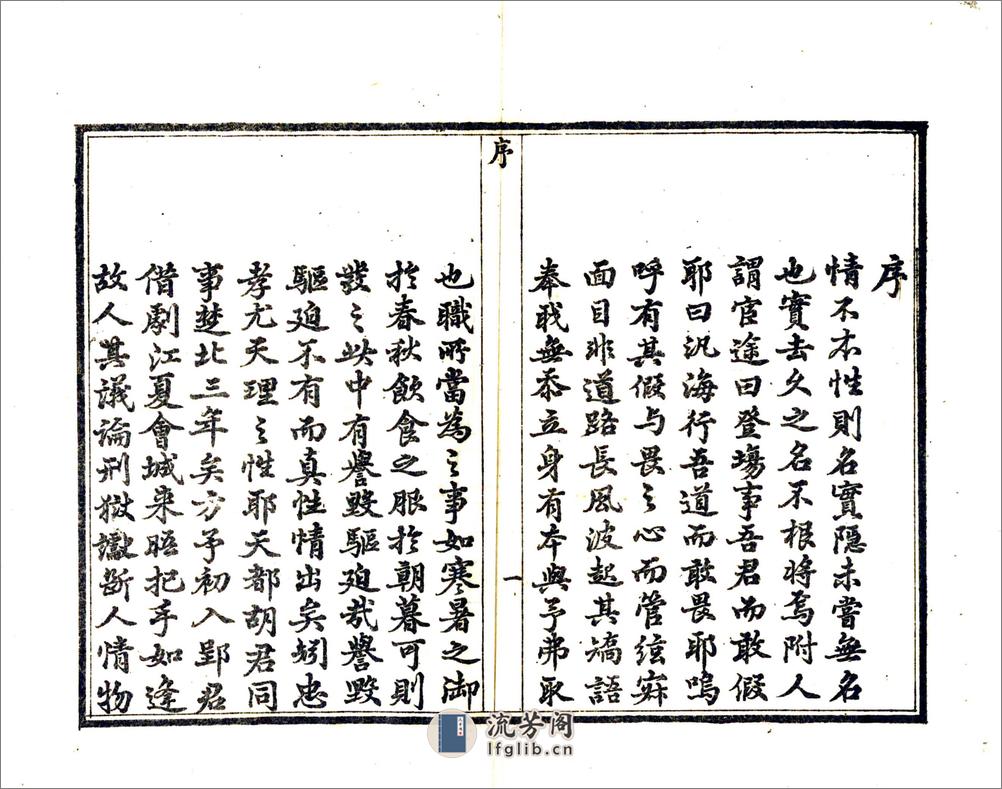 序
情不本性則名實隱未嘗無名
也實去久之名不根將焉附人
謂宦途曰登場事吾君而敢假
耶曰汎海行吾道而敢畏耶嗚
呼有其假与畏之心而管絃寂
面目非道路長風波起其矯語
奉我無忝立身有本與予弗取
序
一
也職所當為之事如寒暑之御
於春秋飲食之服於朝暮可則
發之此中有譽毀驅廹哉譽毀
驅廹不有而真性情出矣矧忠
孝尤天理之性耶天都胡君同
事楚北三年矣方予初入郢君
借劇江夏會城来晤把手如逢
故人其議論刑獄讞斷人情物
流芳阁
lfglib.cn